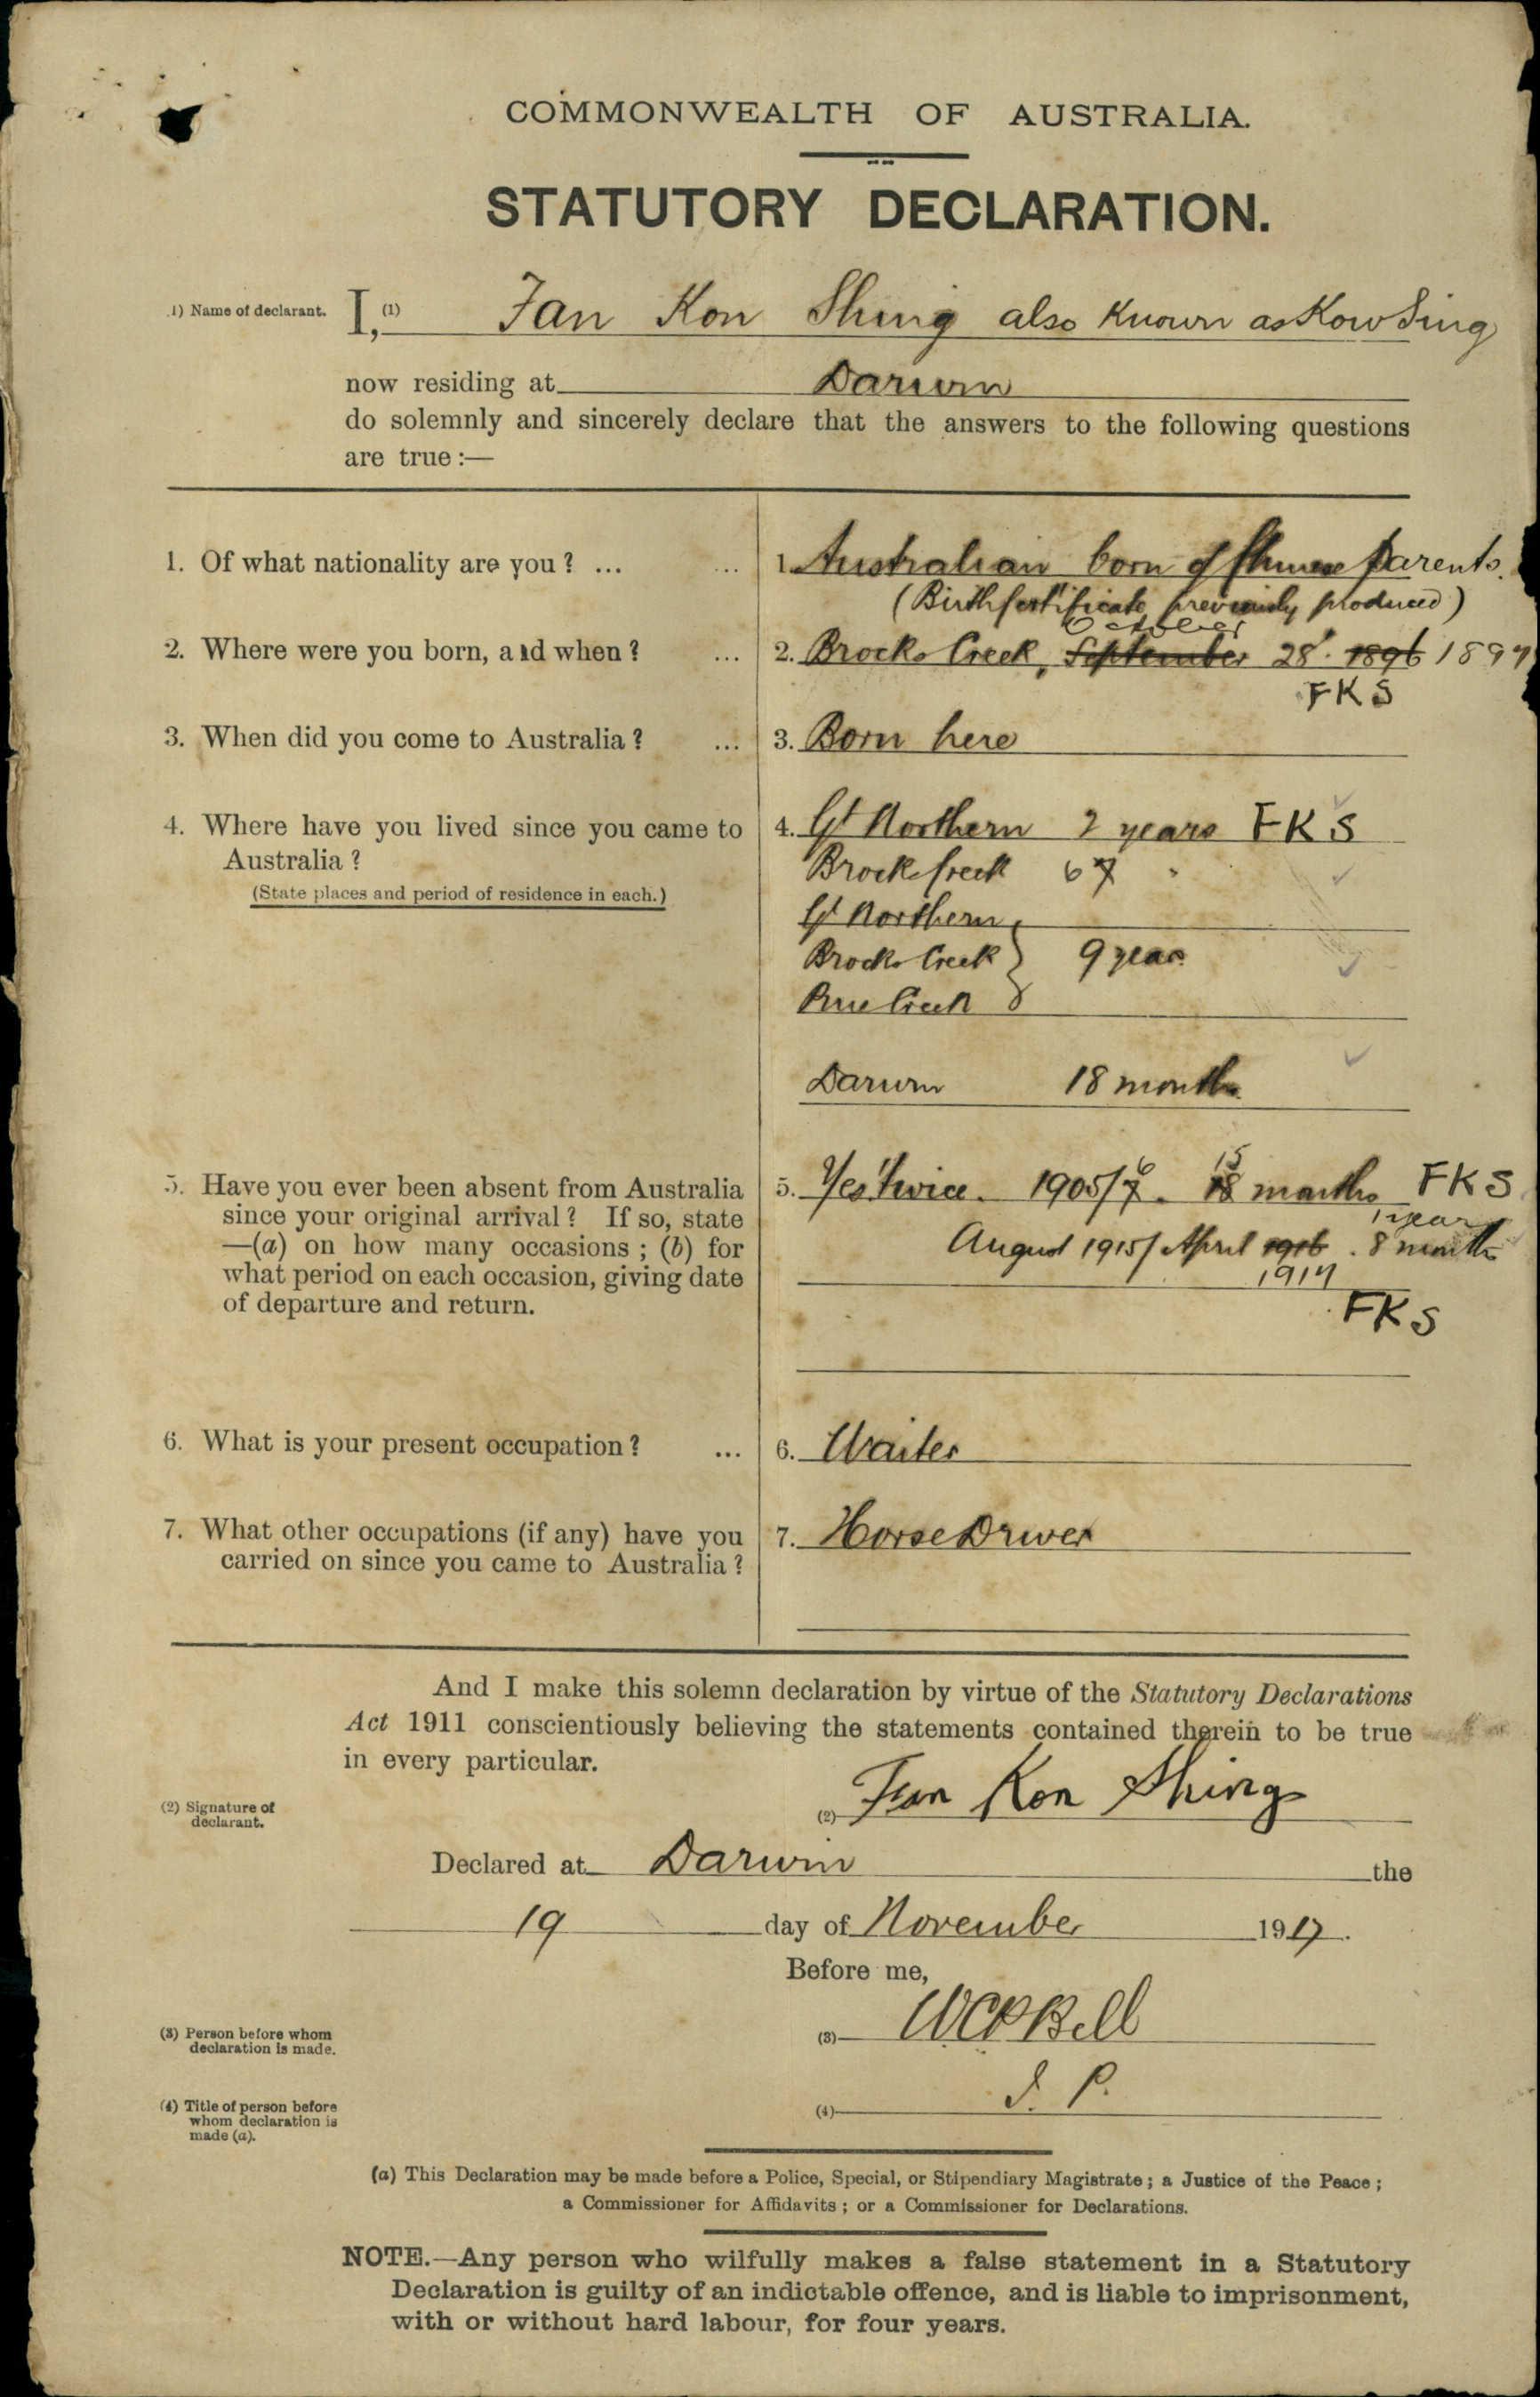 COMMONWEALTH OF AUSTRALIA.
STATUTORY DECLARATION.
1) Name of declarant. I, (1) Fan Kon Shing also known as Kow Sing
now residing at Darwin
do solemnly and sincerely declare that the answers to the following questions
are true:—
1. Of what nationality are you? ... ... 1. Australian born of Chinese parents.
(Birth Certificate previously produced)
October
2. Where were you born, and when? ... 2. Brocks Creek, September 28. 1896 1897
FKS
3. When did you come to Australia? ... 3. Born here
4. Where have you lived since you came to 4. Gt Northern 2 years FKS
Australia? Brocks Creek 6 7 "
(State places and period of residence in each.) Gt Northern
Brocks Creek } 9 years
Pine Creek
Darwin 18 months
5. Have you ever been absent from Australia 5. Yes twice. 1905/7 6. 18 15 months FKS
since your original arrival? If so, state 1 year
—(a) on how many occasions; (b) for August 1915/ April 1916. 8 months
what period on each occasion, giving date 1917
of departure and return. FKS
6. What is your present occupation? ... 6. Waiter
7. What other occupations (if any) have you 7. Horse Driver
carried on since you came to Australia?
And I make this solemn declaration by virtue of the Statutory Declarations
Act 1911 conscientiously believing the statements contained therein to be true
in every particular.
(2) Signature of
declarant. (2) Fan Kon Shing
Declared at Darwin the
19 day of November 1917.
Before me,
(3) Person before whom
declaration is made. (3) WCPBell
(4) Title of person before
whom declaration is
made (a). (4) J. P.
(a) This Declaration may be made before a Police, Special, or Stipendiary Magistrate; a Justice of the Peace;
a Commissioner for Affidavits; or a Commissioner for Declarations.
NOTE.—Any person who wilfully makes a false statement in a Statutory
Declaration is guilty of an indictable offence, and is liable to imprisonment,
with or without hard labour, for four years.